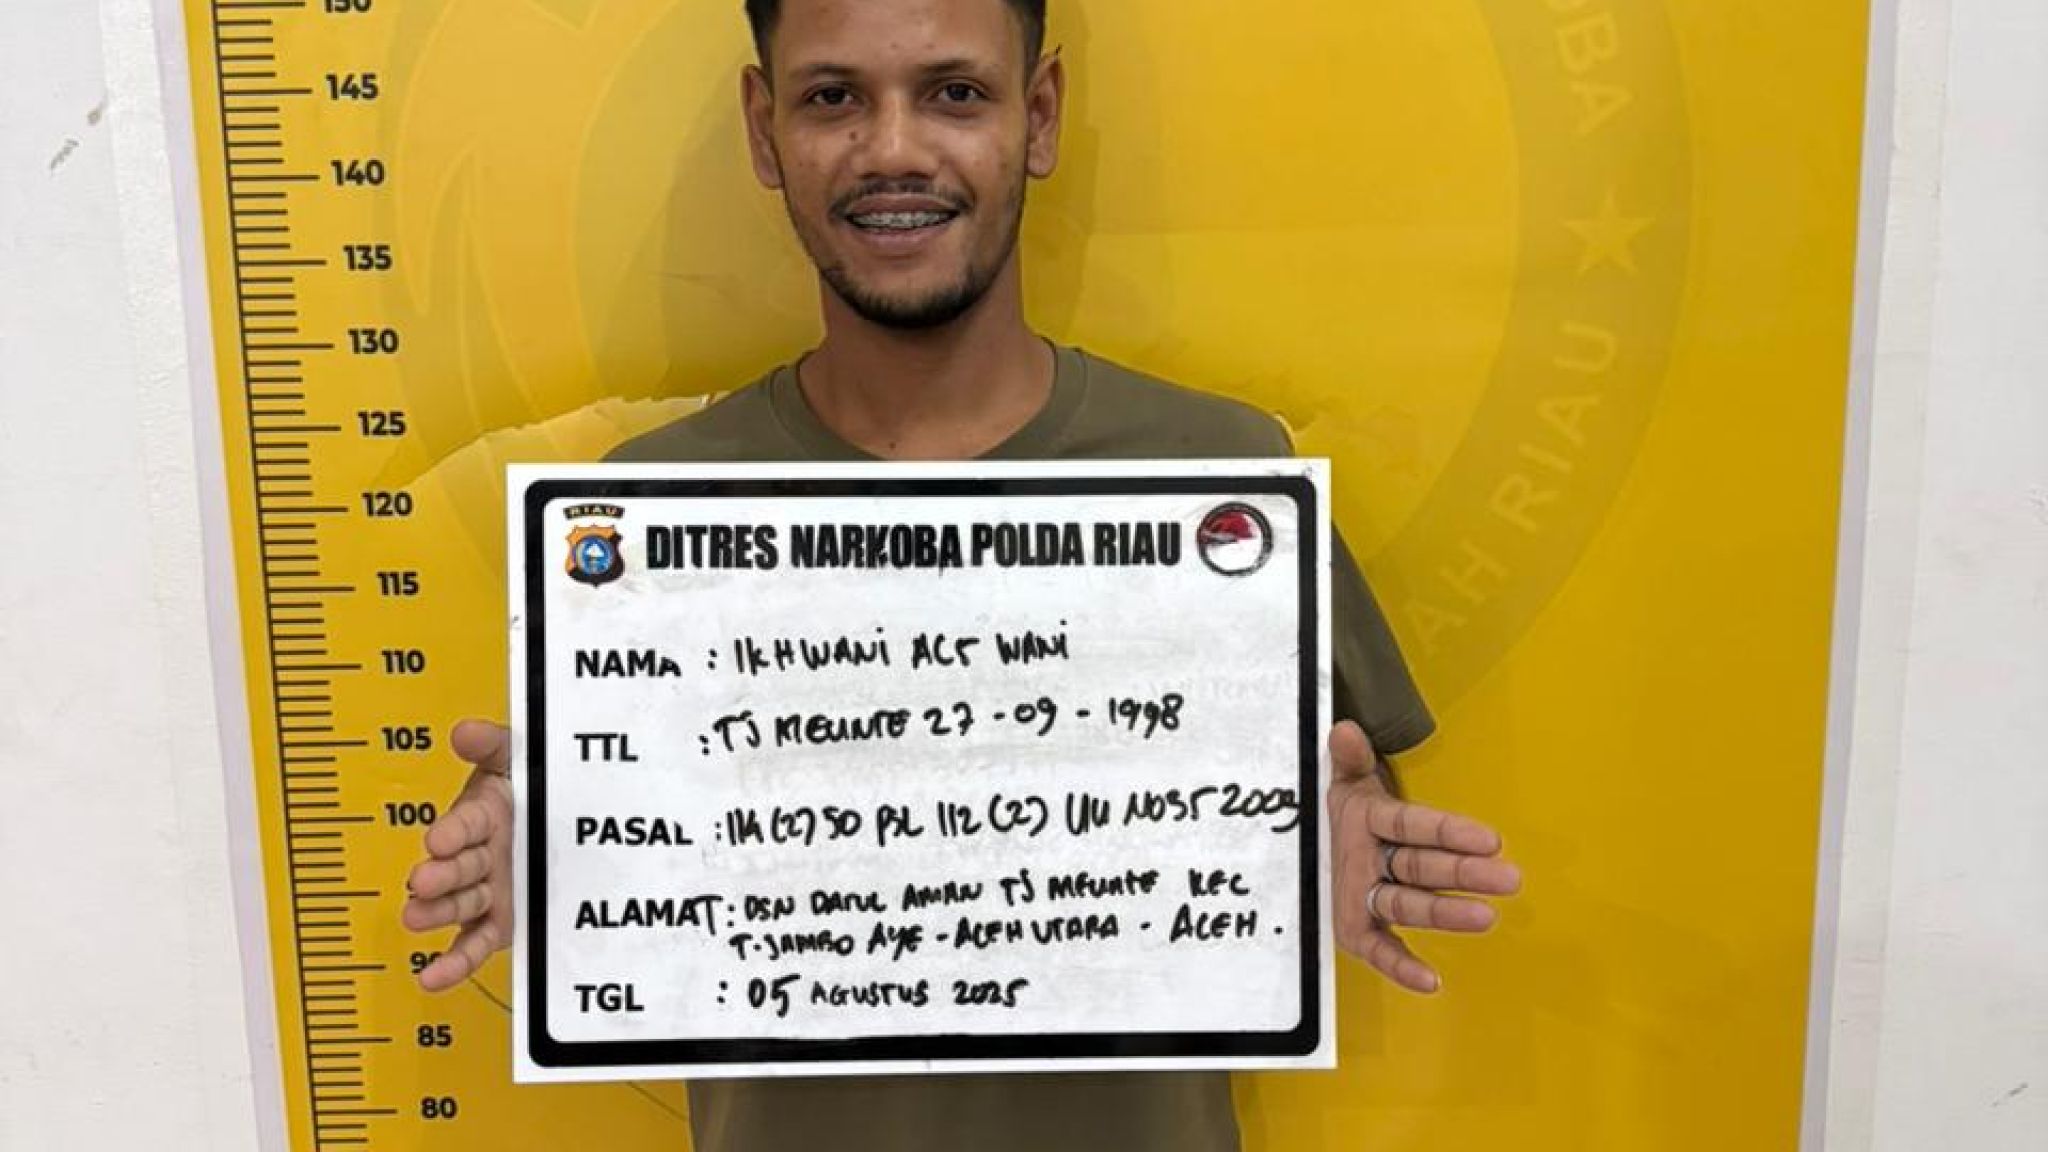 150
145
140
135
130
125
120
115
110
105
100
90
85
80
OBA ★
AH RIAU
RIAU
DITRES NARKOBA POLDA RIAU
NAMA : IKHWANI ALS WANI
TTL : TJ MEUNTE 27-09-1998
PASAL : 114 (2) SO PSL 112 (2) UU NO35 2009
ALAMAT : DSN DARUL AMAN TJ MEUNTE KEC
T.JAMBO AYE - ACEH UTARA - ACEH.
TGL : 05 AGUSTUS 2025